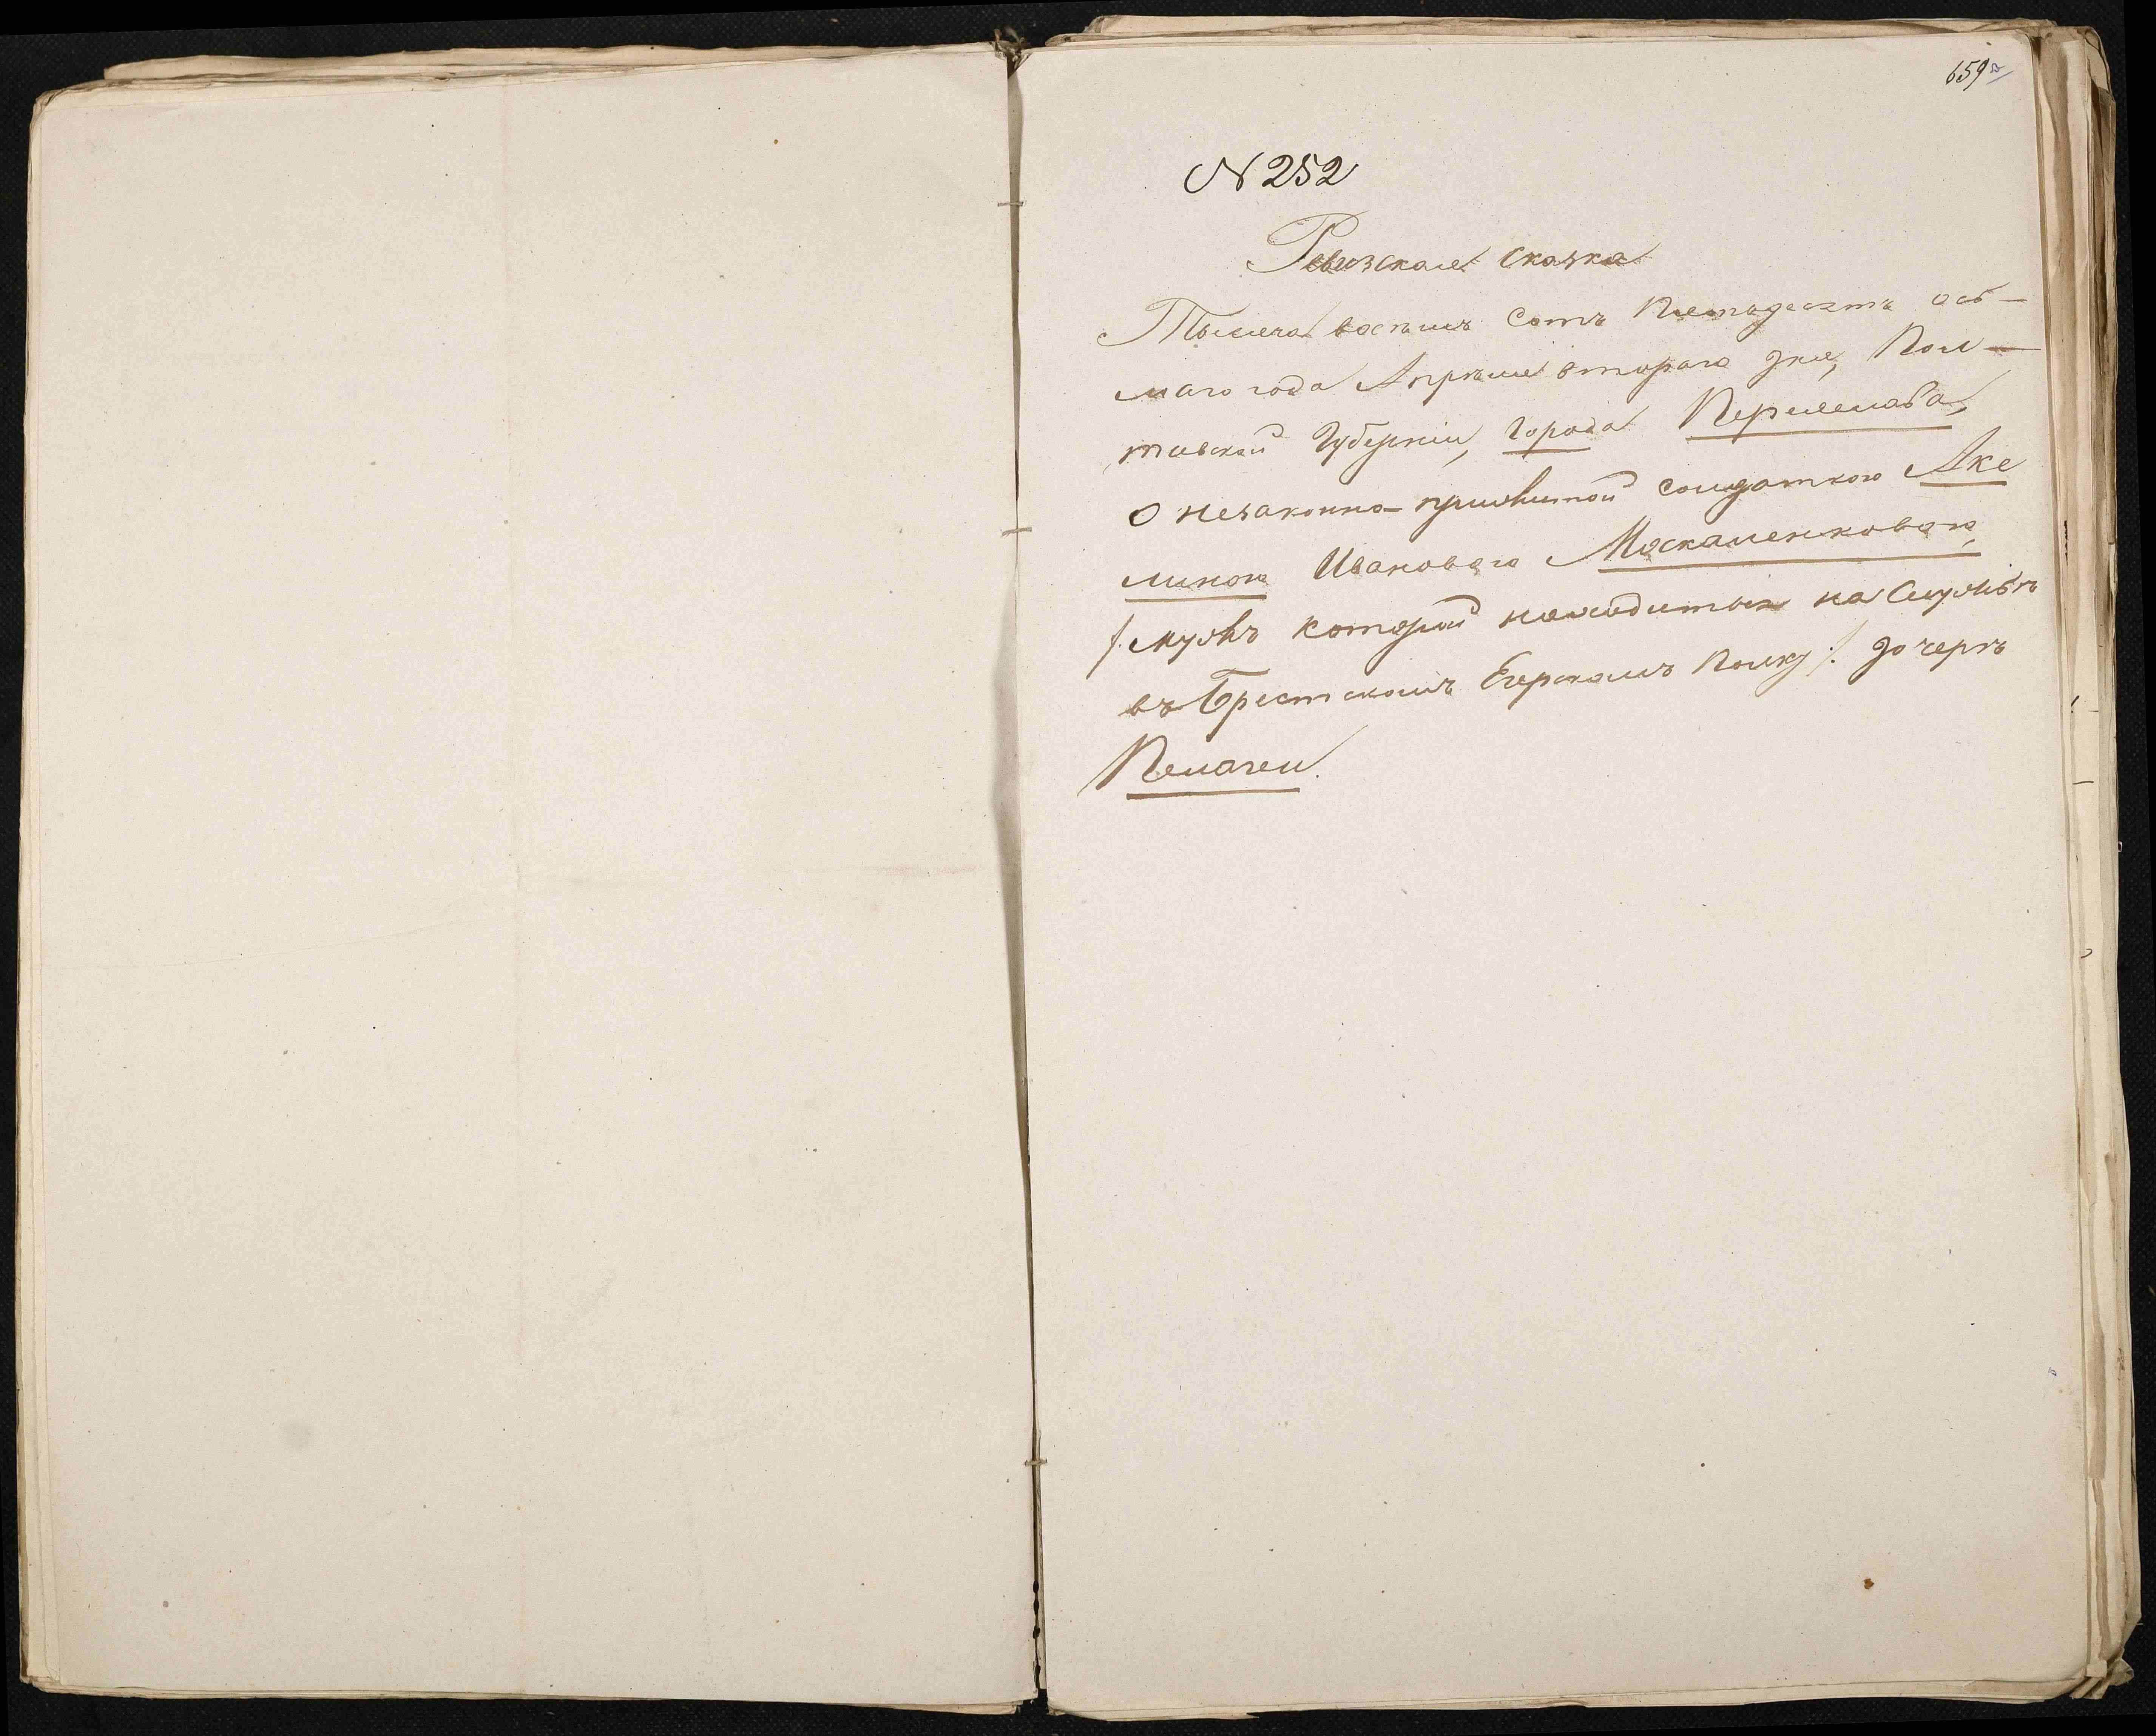 659
N 252
Ревизская сказка
Тысяча восемь сотъ пятьдесятъ ось-
маго года Апреля втораго дня, Пол-
тавской Губерніи, Города Переяслава,
О незаконно-прижитой солдаткою Аке
линою Ивановою Москаленковою,
/: мужъ которой находится на службѣ
въ Брестскомъ Егерскомъ полку :/ дочерѣ
Пелагеи.